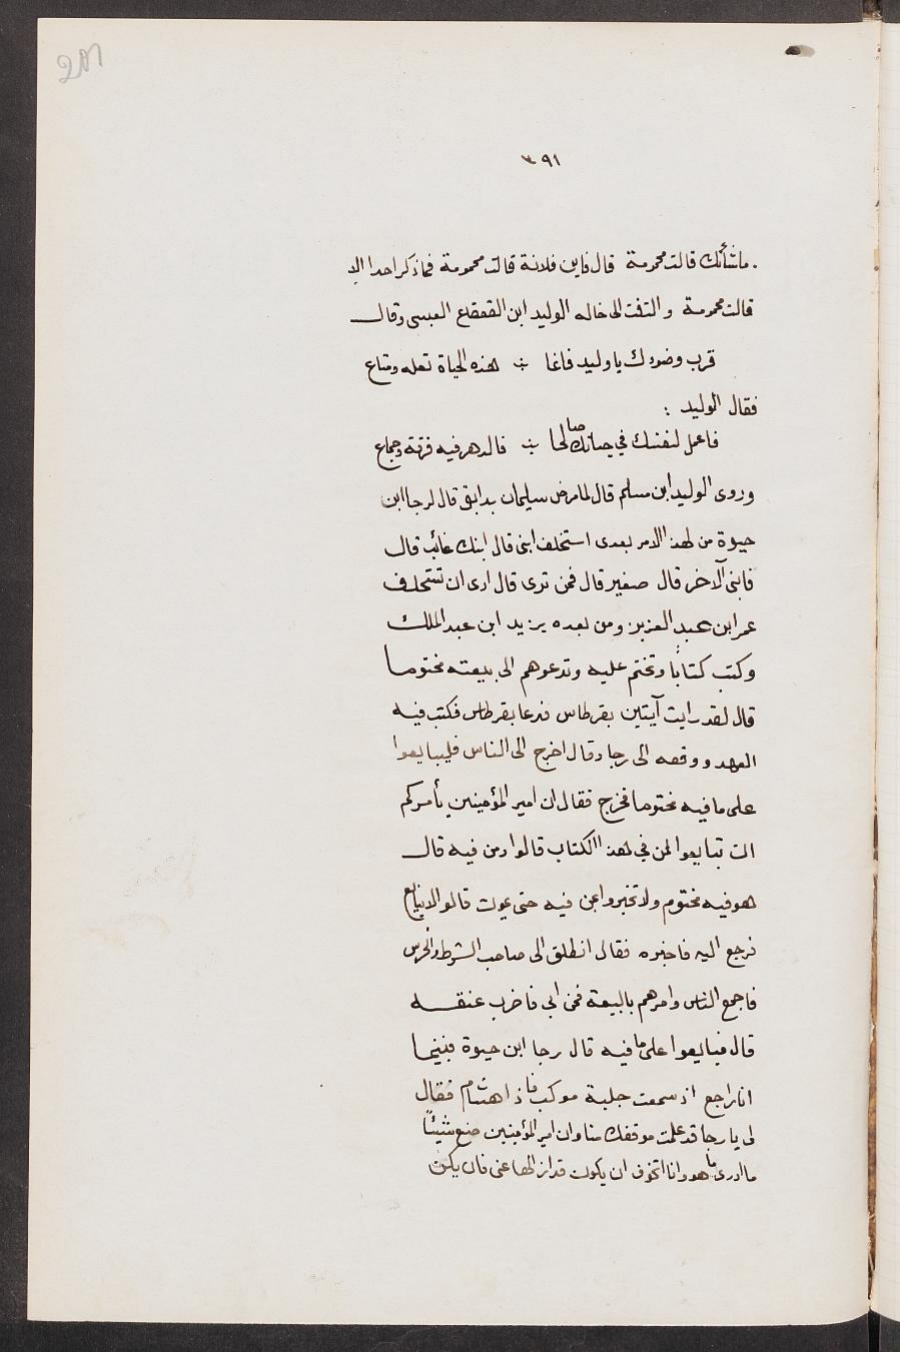 ٣٩١
ماشأنك قالت محرمة قال فاين فلانة قالت محمومة فما ذكر احدا الا
قالت محمومة والتفت الى خاله الوليد ابن القعقاع العبسى وقال
قرب وضوءك يا وليد فانما ÷ هذه الحياة تعله ومتاع
فقال الوليد :
فاعمل لنفسك في حياتك صالحا ÷ فالدهر فيه فرقة وجماع
وروى الوليد ابن مسلم قال لما مرض سليمان بدابق قال لرجا ابن
حيوة من لهذا الامر بعدى استخلف ابنى قال ابنك غائب قال
فابنى الآخر قال صغير قال فمن ترى قال ارى ان تستخلف
عمر ابن عبد العزيز ومن بعده يزيد ابن عبد الملك
وكتب كتابا وتختم عليه وتدعوهم الى بيعته مختوما
قال لقد رايت آيتين بقرطاس فدعا بقرطاس فكتب فيه
العهد ووقعه الى رجا وقال اخرج الى الناس فليبايعوا
على مافيه مختوما فخرج فقال ان امير المؤمنين يأمركم
ان تبايعوا لمن في هذا الكتاب قالوا ومن فيه قال
هو فيه مختوم ولا تخبروا عن فيه حتى يموت قالوا لا نبايع
فرجع اليه فاخبره فقال انطلق الى صاحب الشرط والحرس
فاجمع الناس وامرهم بالبيعة فمن ابى فاضرب عنقه
قال فبايعوا على ما فيه قال رجا ابن حيوة فبينما
انا راجع اذ سمعت جلبة موكب فاذا هشام فقال
لى يا رجا قد علمت موقفك منا وان امير المؤمنين صنع شيئًا
ما ادرى ما هو وانا اتخوف ان يكون قد ازالها عنى فان يكن